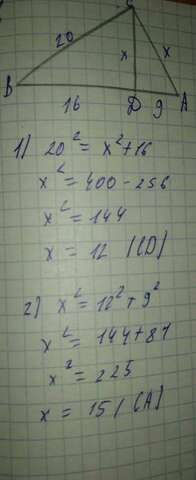 C
20
x x
B
16 D 9 A
1) 20² = x² + 16
x² = 400 - 256
x² = 144
x = 12 (CD)
2) x² = 12² + 9²
x² = 144 + 81
x² = 225
x = 15 (CA)